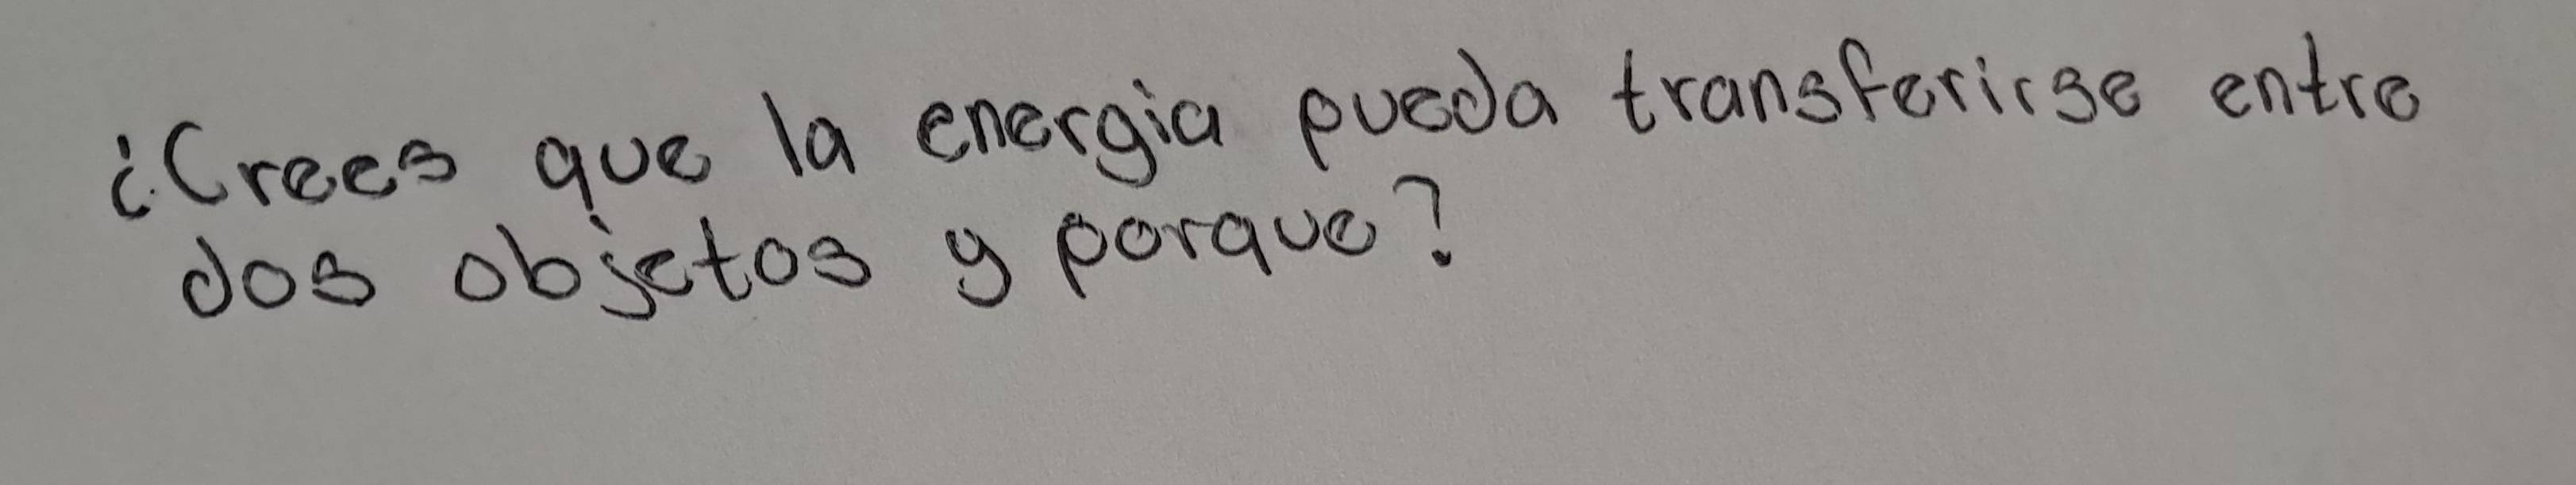 ¿Crees que la energia pueda transferirse entre
dos objetos y porque?